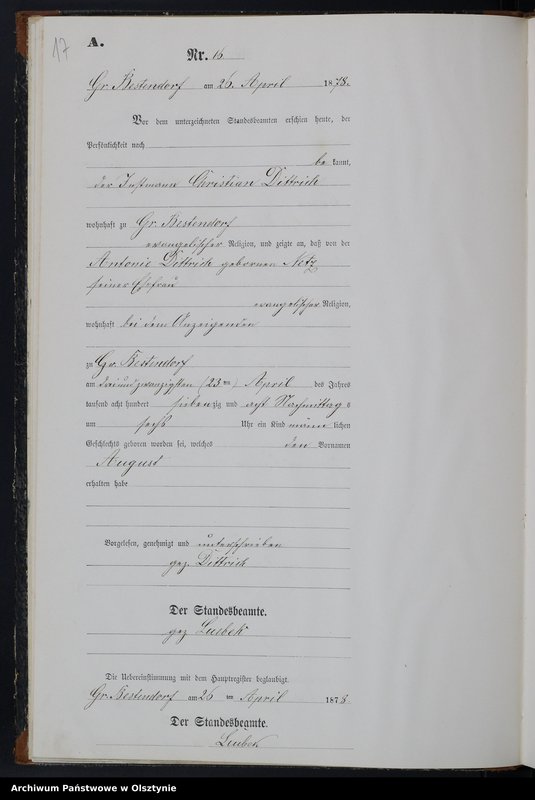 17
A.
Nr. 16
Gr. Bestendorf am 26. April 1878.
Vor dem unterzeichneten Standesbeamten erschien heute, der
Persönlichkeit nach
be kannt,
der Instmann Christian Dittrich
wohnhaft zu Gr. Bestendorf
evangelischer Religion, und zeigte an, daß von der
Antonie Dittrich gebornen Netz
seiner Ehefrau
evangelischer Religion,
wohnhaft bei dem Anzeigenden
zu Gr. Bestendorf
am dreiundzwanzigsten (23ten) April des Jahres
tausend acht hundert siebenzig und acht Nachmittags
um sechs Uhr ein Kind männlichen
Geschlechts geboren worden sei, welches den Vornamen
August
erhalten habe
Vorgelesen, genehmigt und unterschrieben
gez. Dittrich
Der Standesbeamte.
gez. Luebek
Die Uebereinstimmung mit dem Hauptregister beglaubigt.
Gr. Bestendorf am 26 ten April 1878.
Der Standesbeamte.
Luebek
Archiwum Państwowe w Olsztynie